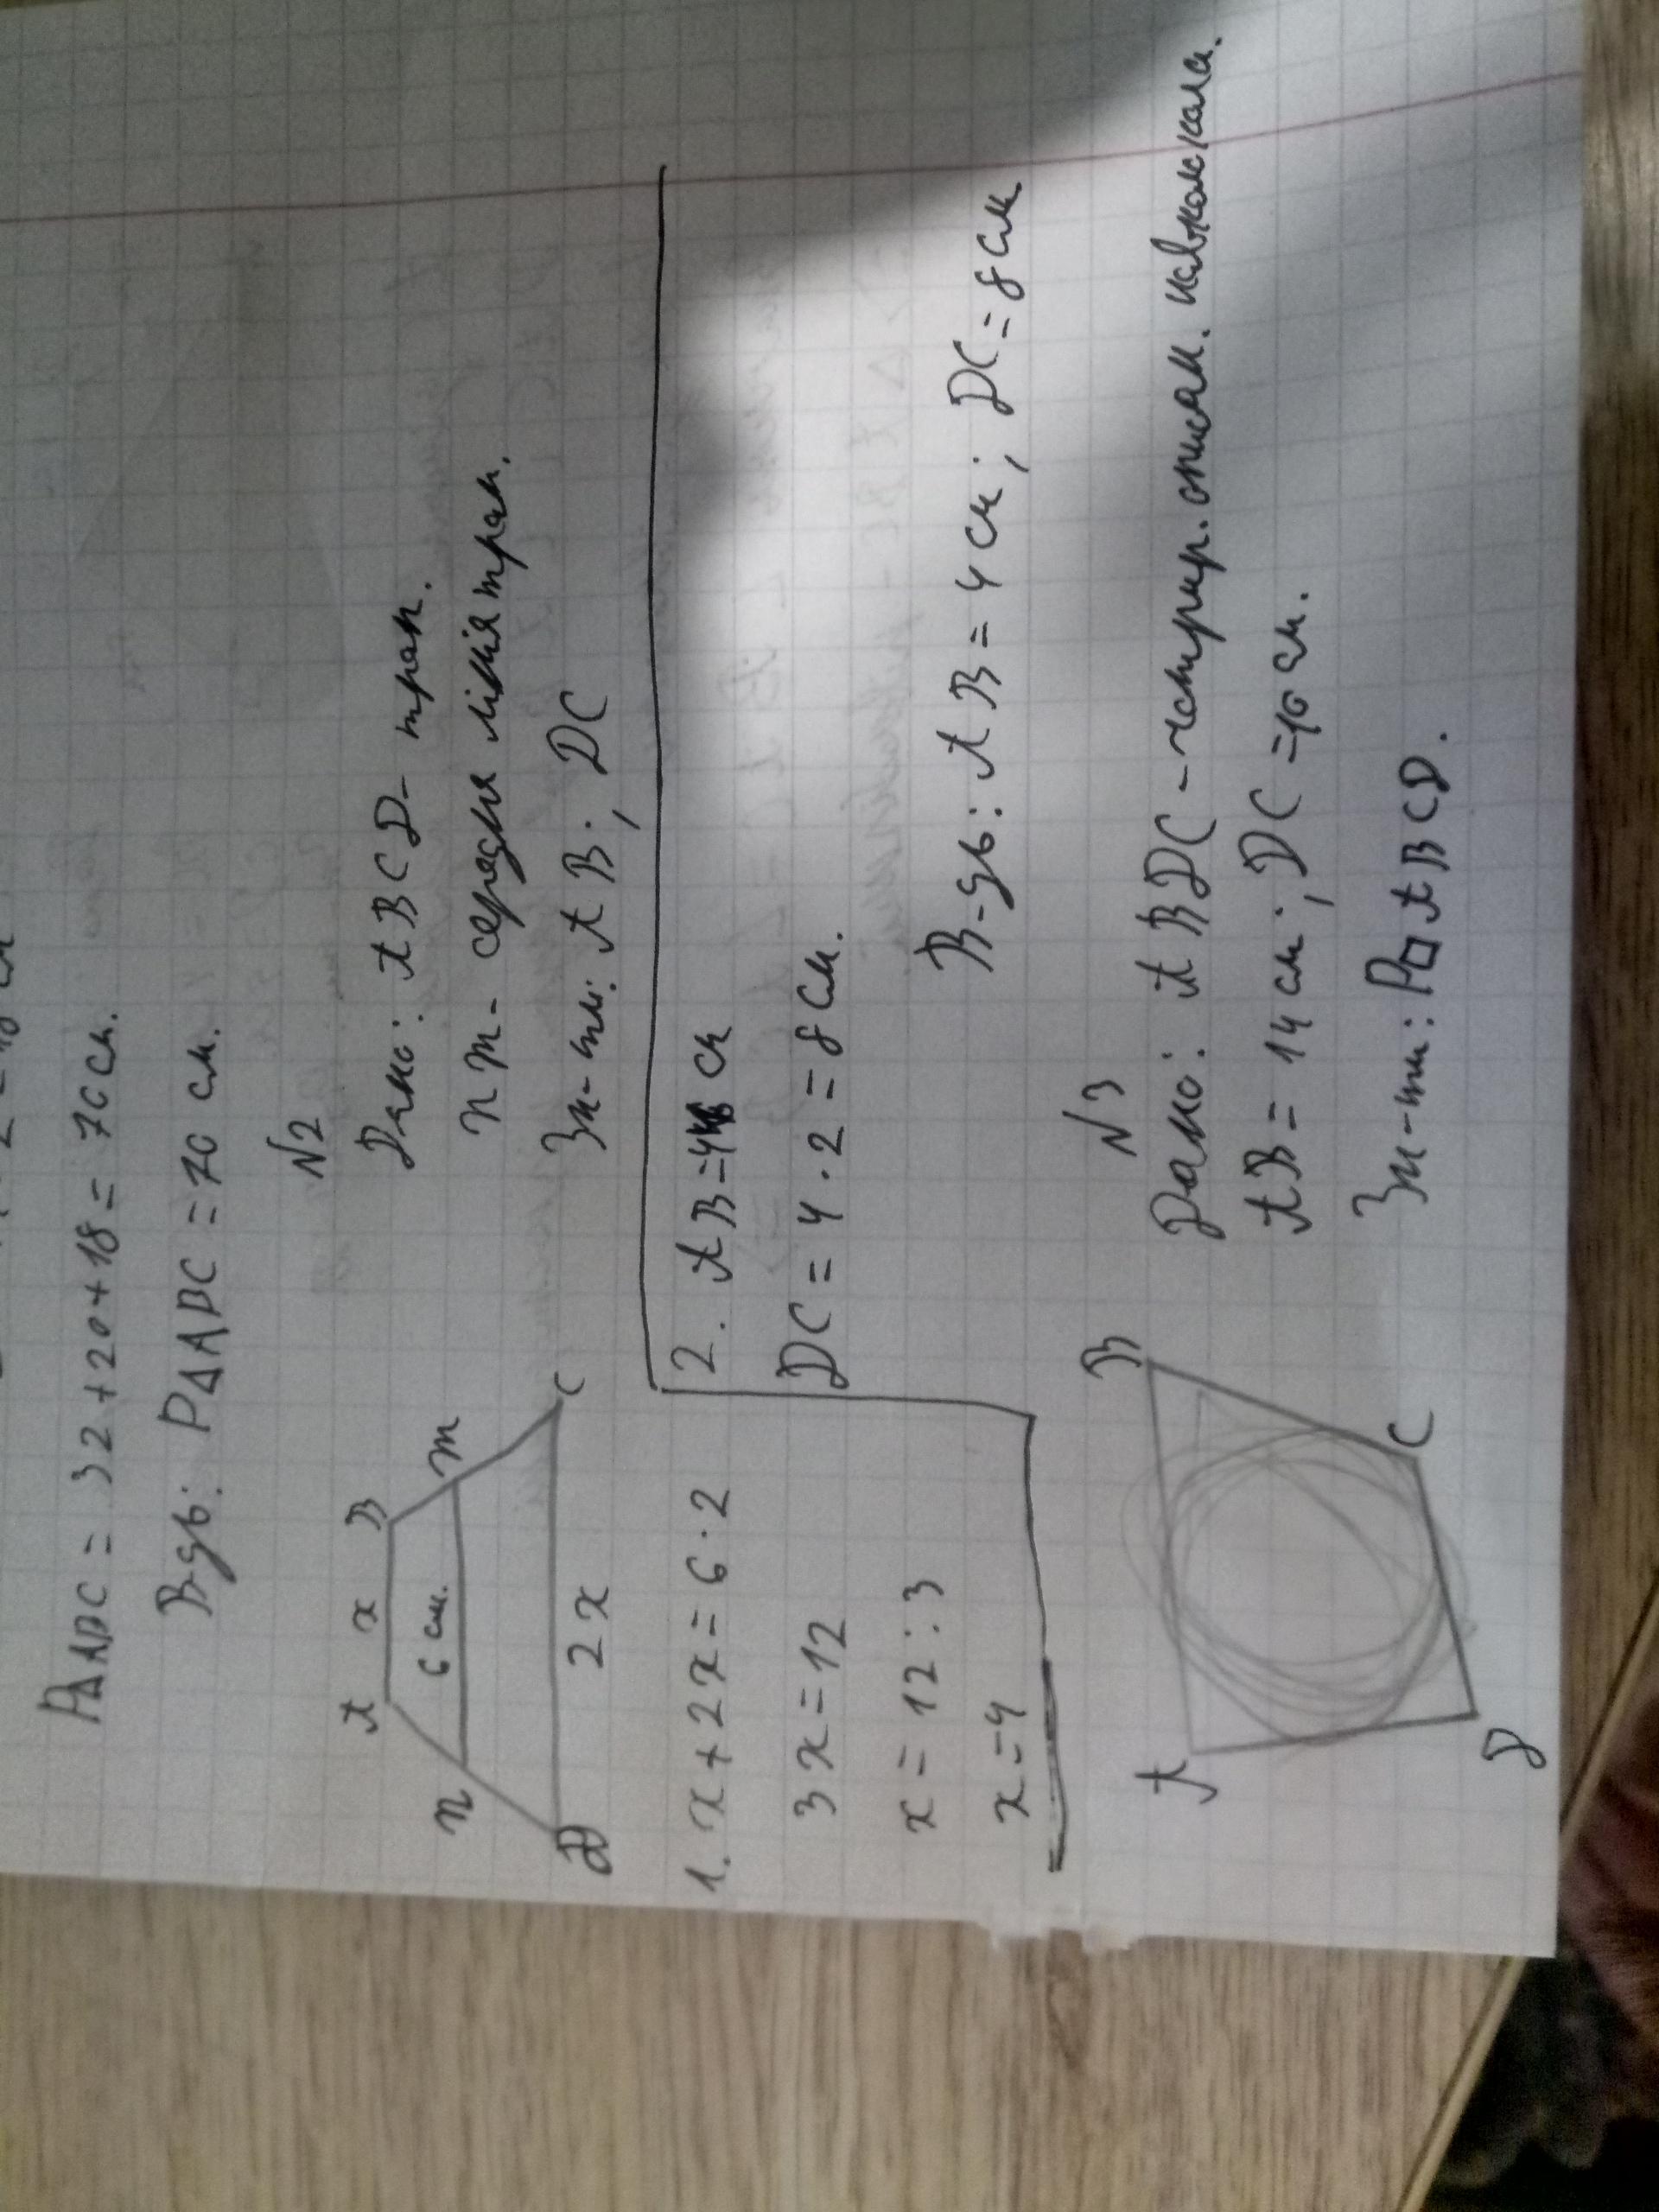 P∆ADC = 32+20+18 = 70 см.
В-дь: P∆ADC = 70 см.
N2
A x B
6 см.
n m
D 2x C
Дано: ABCD - трап.
nm - середня лінія трап.
Зн-ти: AB; DC
1. x+2x=6·2
3x=12
x=12:3
x=4
2. AB=4 см
DC=4·2=8 см.
В-дь: AB=4 см; DC=8 см
N3
A B
D C
Дано: ABDC - чотирир. описан. навколо кола.
AB=14 см; DC=10 см.
Зн-ти: P□ABCD.